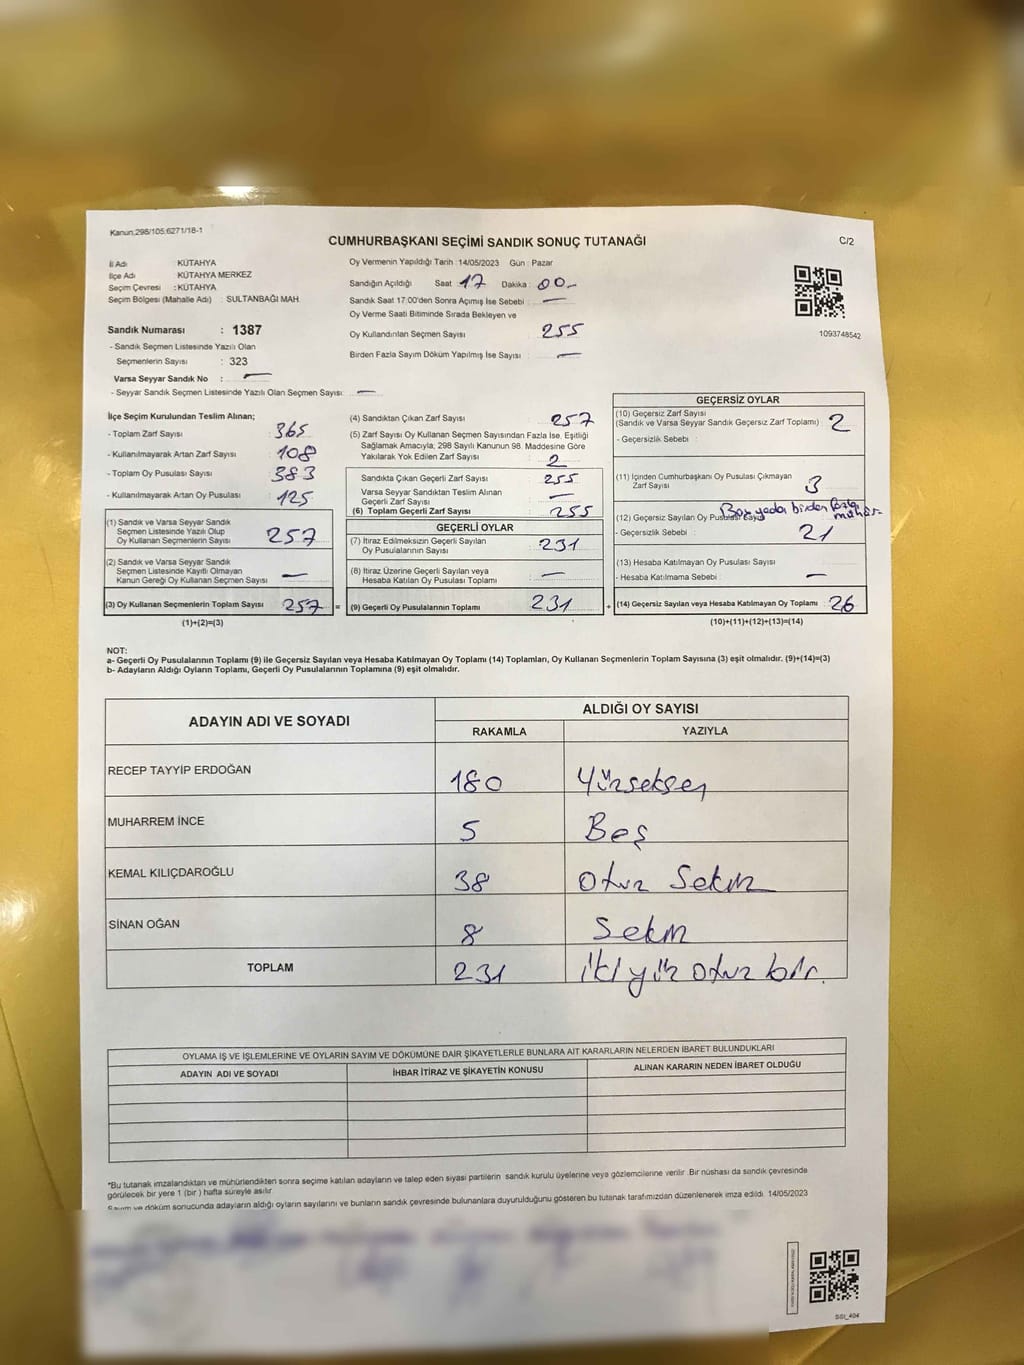 Kanun,298/105;6271/18-1
CUMHURBAŞKANI SEÇİMİ SANDIK SONUÇ TUTANAĞI
C/2
İl Adı : KÜTAHYA
İlçe Adı : KÜTAHYA MERKEZ
Seçim Çevresi : KÜTAHYA
Seçim Bölgesi (Mahalle Adı) : SULTANBAĞI MAH.
Sandık Numarası : 1387
- Sandık Seçmen Listesinde Yazılı Olan
Seçmenlerin Sayısı : 323
Varsa Seyyar Sandık No : —
- Seyyar Sandık Seçmen Listesinde Yazılı Olan Seçmen Sayısı: —
Oy Vermenin Yapıldığı Tarih :14/05/2023 Gün : Pazar
Sandığın Açıldığı Saat 17 Dakika : 00
Sandık Saat 17:00'den Sonra Açımış İse Sebebi : —
Oy Verme Saati Bitiminde Sırada Bekleyen ve
Oy Kullandırılan Seçmen Sayısı 255
Birden Fazla Sayım Döküm Yapılmış İse Sayısı : —
1093748542
İlçe Seçim Kurulundan Teslim Alınan;
- Toplam Zarf Sayısı : 365
- Kullanılmayarak Artan Zarf Sayısı : 108
- Toplam Oy Pusulası Sayısı : 383
- Kullanılmayarak Artan Oy Pusulası : 125
(1) Sandık ve Varsa Seyyar Sandık
Seçmen Listesinde Yazılı Olup
Oy Kullanan Seçmenlerin Sayısı 257
(2) Sandık ve Varsa Seyyar Sandık
Seçmen Listesinde Kayıtlı Olmayan
Kanun Gereği Oy Kullanan Seçmen Sayısı : —
(3) Oy Kullanan Seçmenlerin Toplam Sayısı 257 =
(1)+(2)=(3)
(4) Sandıktan Çıkan Zarf Sayısı : 257
(5) Zarf Sayısı Oy Kullanan Seçmen Sayısından Fazla İse, Eşitliği
Sağlamak Amacıyla; 298 Sayılı Kanunun 98. Maddesine Göre
Yakılarak Yok Edilen Zarf Sayısı : 2
Sandıkta Çıkan Geçerli Zarf Sayısı : 255
Varsa Seyyar Sandıktan Teslim Alınan
Geçerli Zarf Sayısı : —
(6) Toplam Geçerli Zarf Sayısı : 255
GEÇERLİ OYLAR
(7) İtiraz Edilmeksizin Geçerli Sayılan
Oy Pusulalarının Sayısı : 231
(8) İtiraz Üzerine Geçerli Sayılan veya
Hesaba Katılan Oy Pusulası Toplamı : —
(9) Geçerli Oy Pusulalarının Toplamı : 231 +
GEÇERSİZ OYLAR
(10) Geçersiz Zarf Sayısı
(Sandık ve Varsa Seyyar Sandık Geçersiz Zarf Toplamı) : 2
- Geçersizlik Sebebi :
(11) İçinden Cumhurbaşkanı Oy Pusulası Çıkmayan
Zarf Sayısı : 3
(12) Geçersiz Sayılan Oy Pusulası Sayısı
Boş yada birden fazla
mühür
- Geçersizlik Sebebi : 21
(13) Hesaba Katılmayan Oy Pusulası Sayısı
- Hesaba Katılmama Sebebi : —
(14) Geçersiz Sayılan veya Hesaba Katılmayan Oy Toplamı : 26
(10)+(11)+(12)+(13)=(14)
NOT:
a- Geçerli Oy Pusulalarının Toplamı (9) ile Geçersiz Sayılan veya Hesaba Katılmayan Oy Toplamı (14) Toplamları, Oy Kullanan Seçmenlerin Toplam Sayısına (3) eşit olmalıdır. (9)+(14)=(3)
b- Adayların Aldığı Oyların Toplamı, Geçerli Oy Pusulalarının Toplamına (9) eşit olmalıdır.
ADAYIN ADI VE SOYADI ALDIĞI OY SAYISI
RAKAMLA YAZIYLA
RECEP TAYYİP ERDOĞAN 180 Yüzseksen
MUHARREM İNCE 5 Beş
KEMAL KILIÇDAROĞLU 38 Otuz Sekiz
SİNAN OĞAN 8 Sekiz
TOPLAM 231 iki yüz otuz bir.
OYLAMA İŞ VE İŞLEMLERİNE VE OYLARIN SAYIM VE DÖKÜMÜNE DAİR ŞİKAYETLERLE BUNLARA AİT KARARLARIN NELERDEN İBARET BULUNDUKLARI
ADAYIN ADI VE SOYADI İHBAR İTİRAZ VE ŞİKAYETİN KONUSU ALINAN KARARIN NEDEN İBARET OLDUĞU
*Bu tutanak imzalandıktan ve mühürlendikten sonra seçime katılan adayların ve talep eden siyasi partilerin sandık kurulu üyelerine veya gözlemcilerine verilir. Bir nüshası da sandık çevresinde
görülecek bir yere 1 (bir ) hafta süreyle asılır.
Sayım ve döküm sonucunda adayların aldığı oyların sayılarını ve bunların sandık çevresinde bulunanlara duyurulduğunu gösteren bu tutanak tarafımızdan düzenlenerek imza edildi. 14/05/2023
SSİ_404